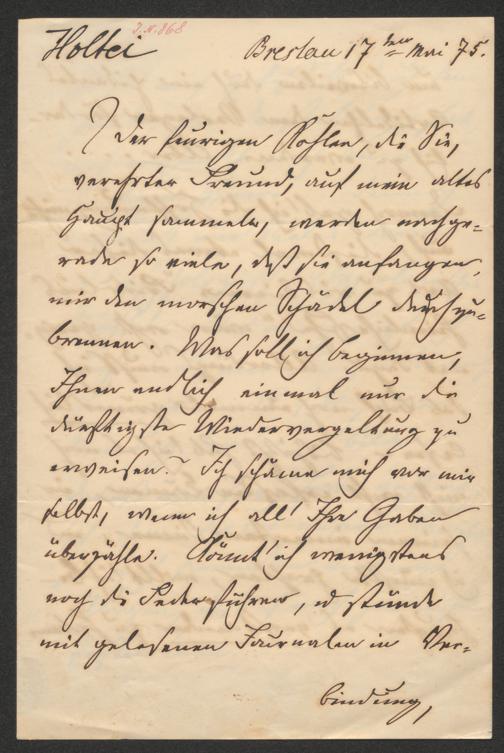 J.N. 868
Holtei Breslau 17ten Mai 75.
Der feurigen Kohlen, die Sie,
verehrter Freund, auf mein altes
Haupt sammeln, werden nachge-
rade so viele, daß sie anfangen,
mir den morschen Schädel durchzu-
brennen. Was soll ich beginnen,
Ihnen endlich einmal nur die
dürftigste Wiedervergeltung zu
erweisen? Ich schäme mich vor mir
selbst, wenn ich all' Ihre Gaben
überzähle. Könnt' ich wenigstens
noch die Feder führen, u stünde
mit gelesenen Journalen in Ver-
bindung,